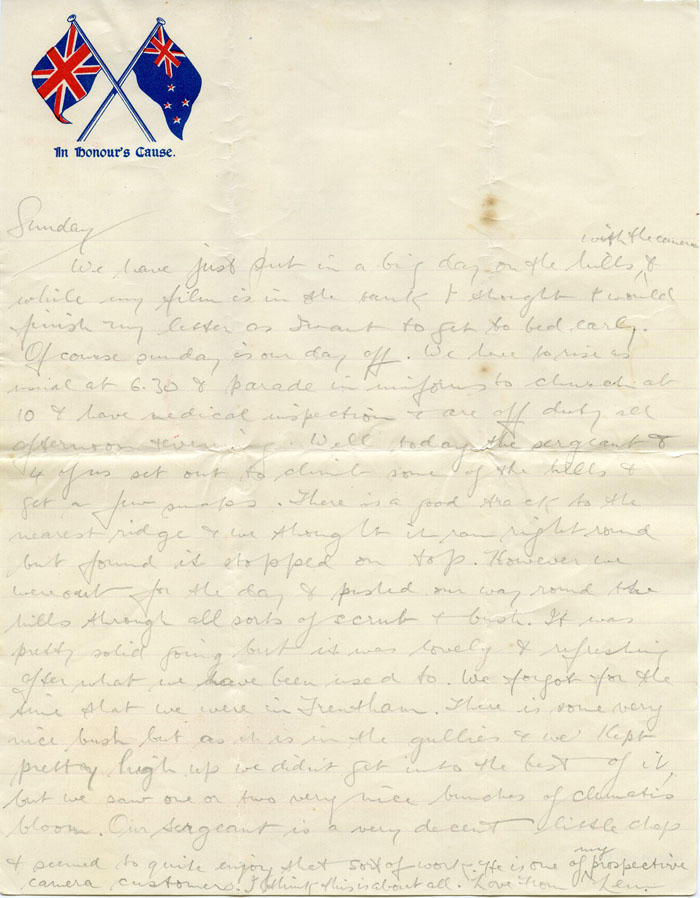 In Honour's Cause.
Sunday
with the camera
We have just put in a big day on the hills, &
while my film is in the tank I thought I would
finish my letter as I want to get to bed early.
Of course sunday is our day off. We have to rise as
usual at 6.30 & parade in uniforms to church at
10 & have medical inspection & are off duty all
afternoon & evening. Well today the sergeant &
4 of us set out to climb some of the hills &
get a few snaps. There is a good track to the
nearest ridge & we thought it ran right round
but found it stopped on top. However we
were out for the day & pushed our way round the
hills through all sorts of scrub & bush. It was
pretty solid going but it was lovely & refreshing
after what we have been used to. We forgot for the
time that we were in Trentham. There is some very
nice bush but as it is in the gullies & we kept
pretty high up we didn't get into the best of it,
but we saw one or two very nice bunches of clematis
bloom. Our sergeant is a very decent little chap
& seemed to quite enjoy that sort of work. He is one of my prospective
camera customers. I think this is about all. Love from Len.